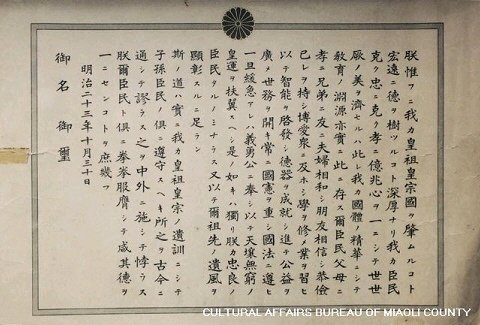 朕惟フニ我カ皇祖皇宗國ヲ肇ムルコト
宏遠ニ德ヲ樹ツルコト深厚ナリ我カ臣民
克ク忠ニ克ク孝ニ億兆心ヲ一ニシテ世世
厥ノ美ヲ濟セルハ此レ我カ國體ノ精華ニシテ
敎育ノ淵源亦實ニ此ニ存ス爾臣民父母ニ
孝ニ兄弟ニ友ニ夫婦相和シ朋友相信シ恭儉
己レヲ持シ博愛衆ニ及ホシ學ヲ修メ業ヲ習ヒ
以テ智能ヲ啓發シ德器ヲ成就シ進テ公益ヲ
廣メ世務ヲ開キ常ニ國憲ヲ重シ國法ニ遵ヒ
一旦緩急アレハ義勇公ニ奉シ以テ天壤無窮ノ
皇運ヲ扶翼スヘシ是ノ如キハ獨リ朕カ忠良ノ
臣民タルノミナラス又以テ爾祖先ノ遺風ヲ
顯彰スルニ足ラン
斯ノ道ハ實ニ我カ皇祖皇宗ノ遺訓ニシテ
子孫臣民ノ俱ニ遵守スヘキ所之ヲ古今ニ
通シテ謬ラス之ヲ中外ニ施シテ悖ラス
朕爾臣民ト俱ニ拳拳服膺シテ咸其德ヲ
一ニセンコトヲ庶幾フ
明治二十三年十月三十日
御名御璽
CULTURAL AFFAIRS BUREAU OF MIAOLI COUNTY